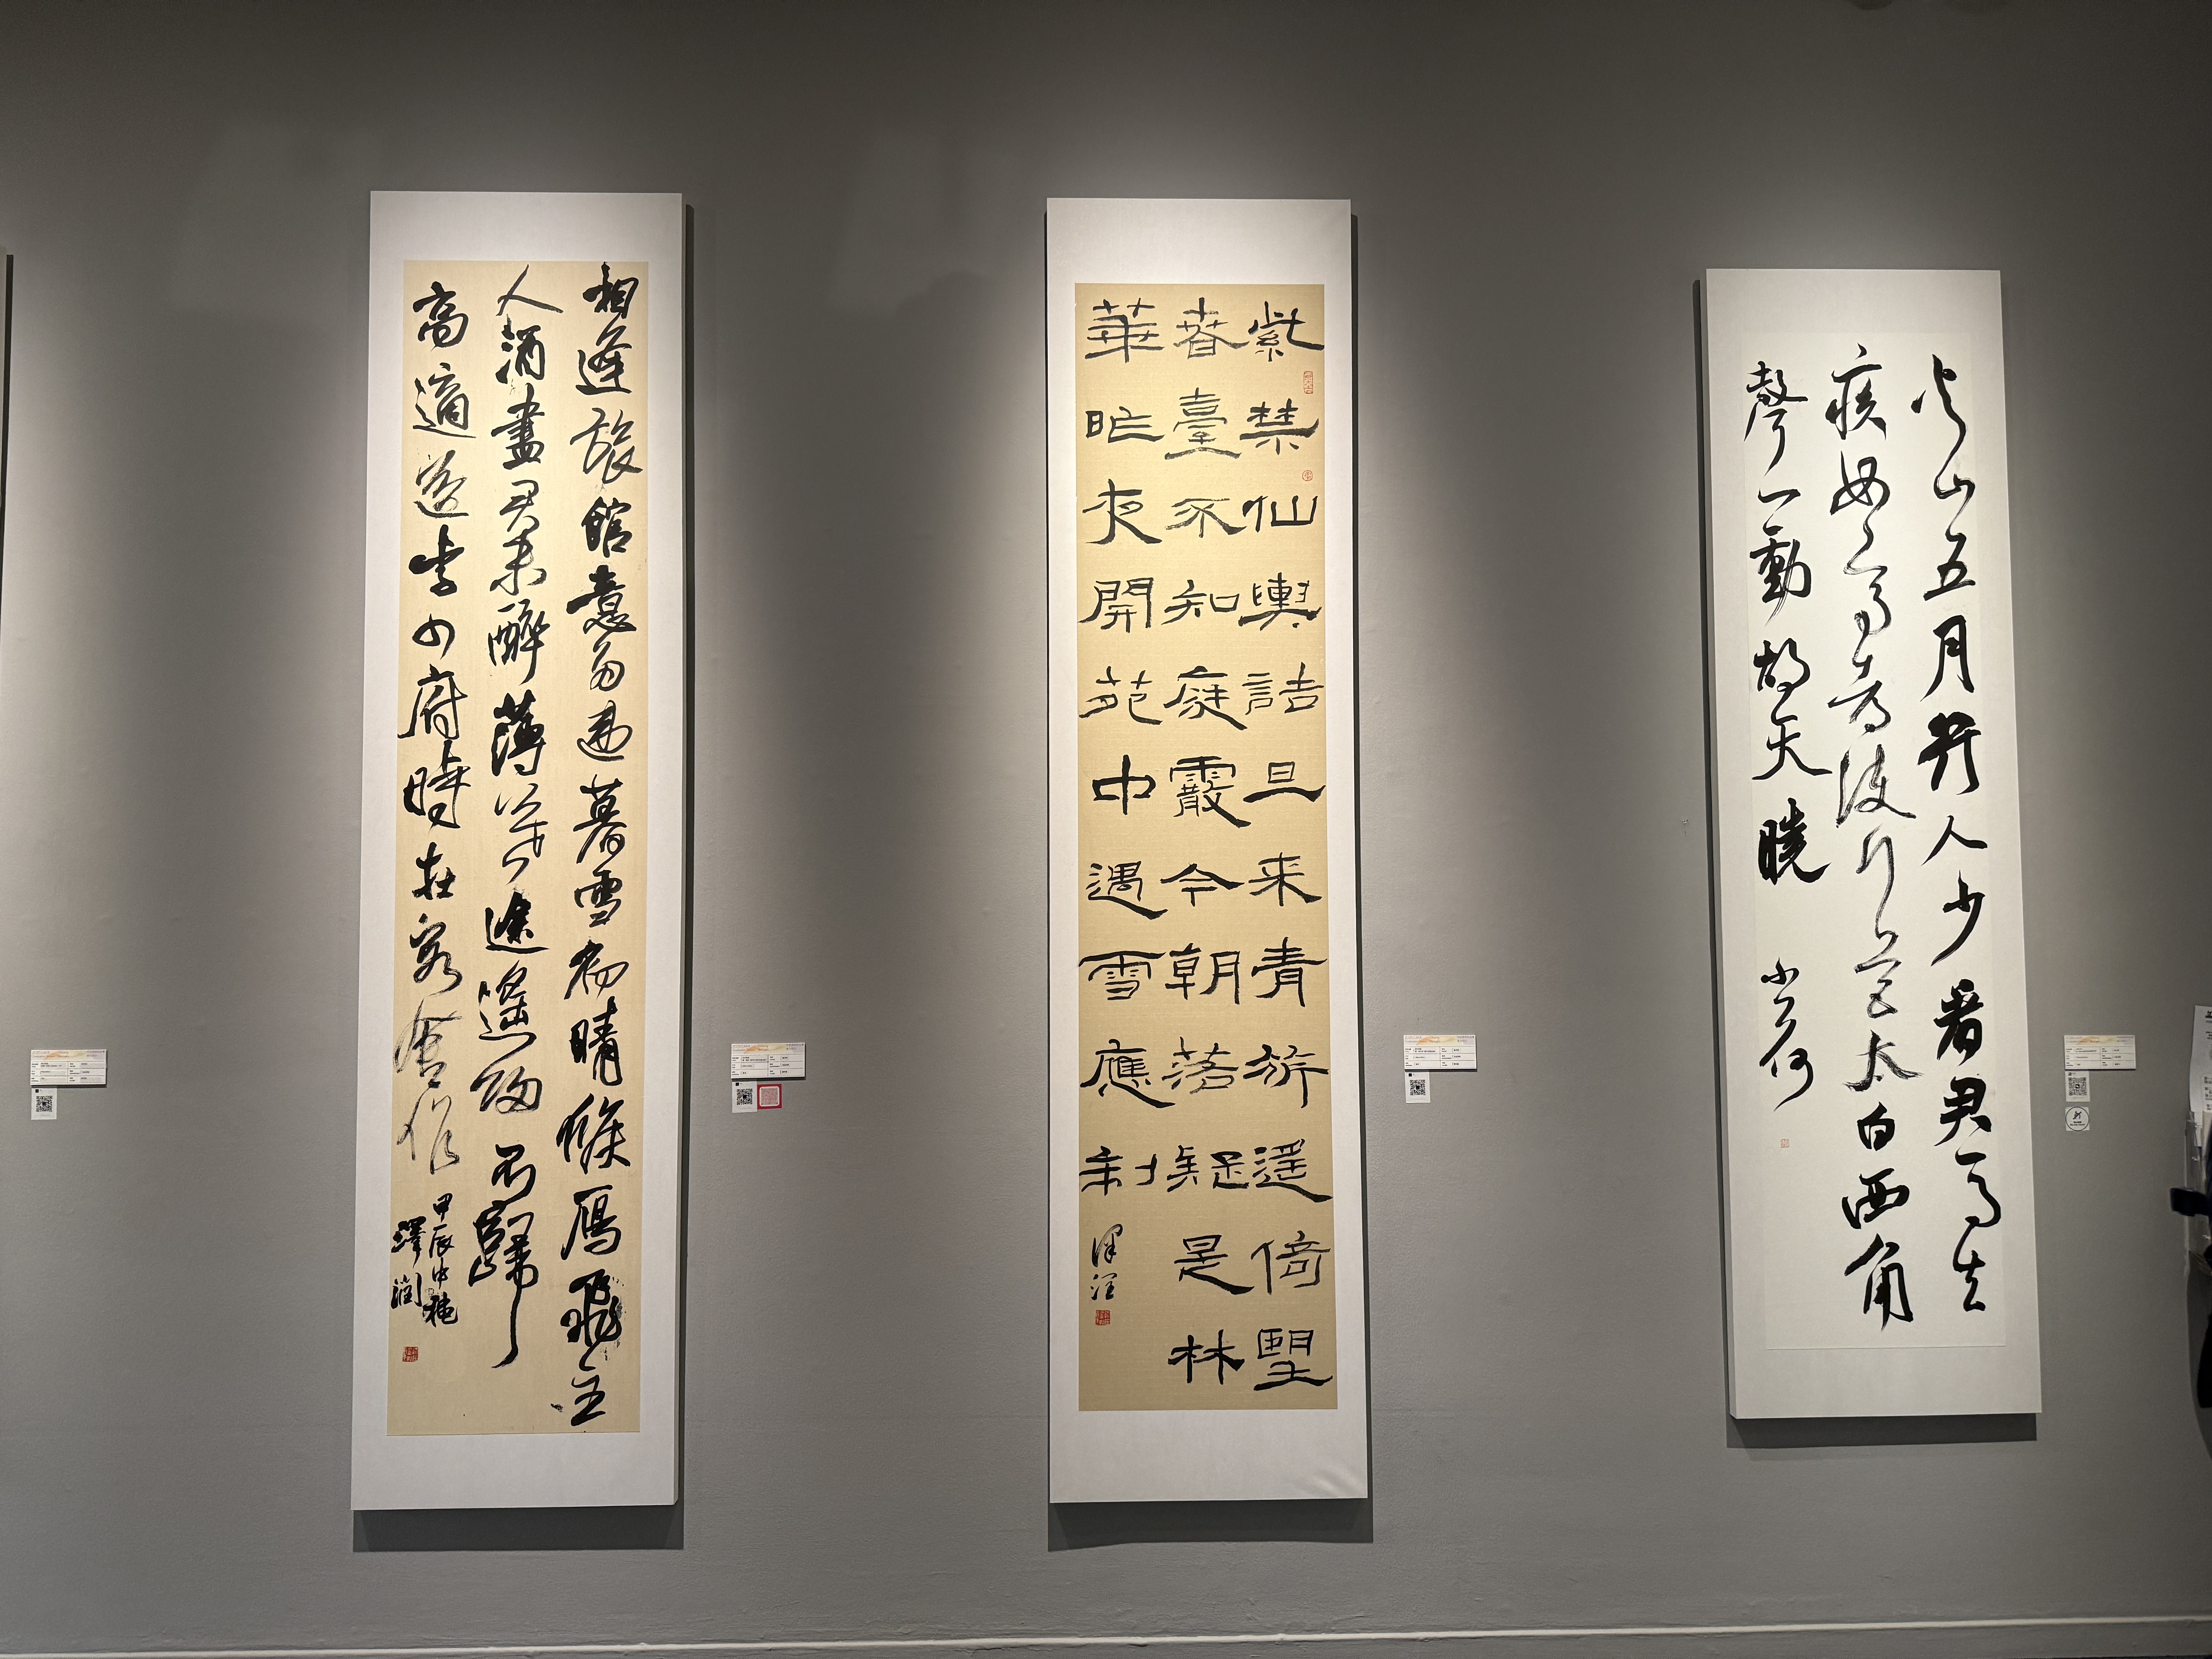 相逢旅館意多違暮雪初晴候雁飛主
人酒盡君未醉薄暮途遙歸不歸
高適送李少府時在客舍作
甲辰中穐
澤潤
紫禁仙輿詰旦来青旂遥倚望
春臺不知庭霰今朝落疑是林
華昨夜開苑中遇雪應制
澤潤
火山五月行人少看君馬去
疾如鳥都護行營太白西角
聲一動胡天曉